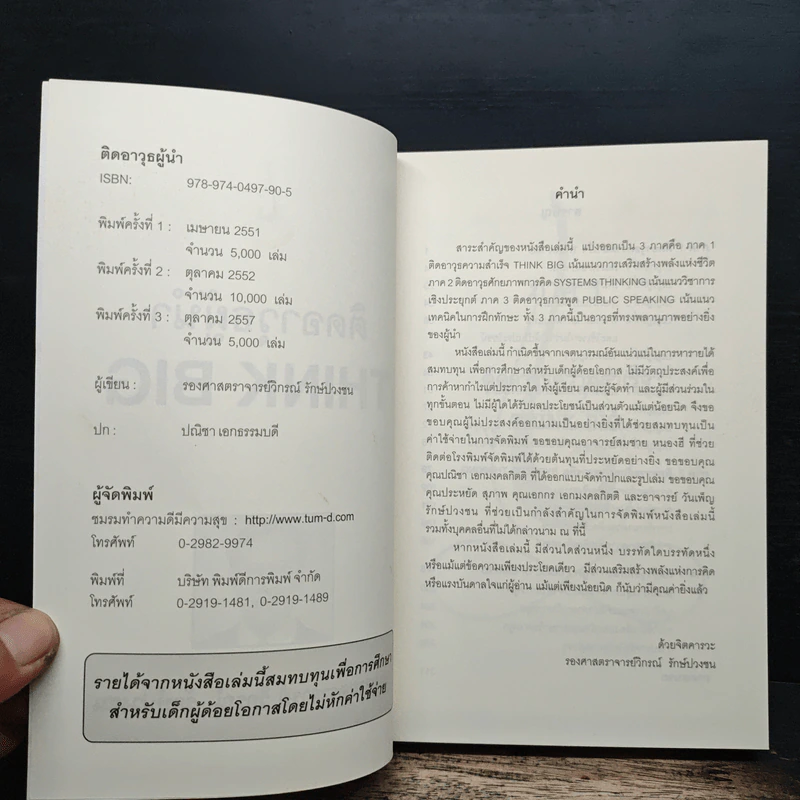 ติดอาวุธผู้นำ
ISBN: 978-974-0497-90-5
พิมพ์ครั้งที่ 1 : เมษายน 2551
จำนวน 5,000 เล่ม
พิมพ์ครั้งที่ 2 : ตุลาคม 2552
จำนวน 10,000 เล่ม
พิมพ์ครั้งที่ 3 : ตุลาคม 2557
จำนวน 5,000 เล่ม
ผู้เขียน : รองศาสตราจารย์วิกรณ์ รักษ์ปวงชน
ปก : ปณิชา เอกธรรมบดี
ผู้จัดพิมพ์
ชมรมทำความดีมีความสุข : http://www.tum-d.com
โทรศัพท์ 0-2982-9974
พิมพ์ที่ บริษัท พิมพ์ดีการพิมพ์ จำกัด
โทรศัพท์ 0-2919-1481, 0-2919-1489
รายได้จากหนังสือเล่มนี้สมทบทุนเพื่อการศึกษา
สำหรับเด็กผู้ด้อยโอกาสโดยไม่หักค่าใช้จ่าย
คำนำ
สาระสำคัญของหนังสือเล่มนี้ แบ่งออกเป็น 3 ภาคคือ ภาค 1
ติดอาวุธความสำเร็จ THINK BIG เน้นแนวการเสริมสร้างพลังแห่งชีวิต
ภาค 2 ติดอาวุธศักยภาพการคิด SYSTEMS THINKING เน้นแนววิชาการ
เชิงประยุกต์ ภาค 3 ติดอาวุธการพูด PUBLIC SPEAKING เน้นแนว
เทคนิคในการฝึกทักษะ ทั้ง 3 ภาคนี้เป็นอาวุธที่ทรงพลานุภาพอย่างยิ่ง
ของผู้นำ
หนังสือเล่มนี้ กำเนิดขึ้นจากเจตนารมณ์อันแน่วแน่ในการหารายได้
สมทบทุน เพื่อการศึกษาสำหรับเด็กผู้ด้อยโอกาส ไม่มีวัตถุประสงค์เพื่อ
การค้าหากำไรแต่ประการใด ทั้งผู้เขียน คณะผู้จัดทำ และผู้มีส่วนร่วมใน
ทุกขั้นตอน ไม่มีผู้ใดได้รับผลประโยชน์เป็นส่วนตัวแม้แต่น้อยนิด จึงขอ
ขอบคุณผู้ไม่ประสงค์ออกนามเป็นอย่างยิ่งที่ได้ช่วยสมทบทุนเป็น
ค่าใช้จ่ายในการจัดพิมพ์ ขอขอบคุณอาจารย์สมชาย หนองฮี ที่ช่วย
ติดต่อโรงพิมพ์จัดพิมพ์ได้ด้วยต้นทุนที่ประหยัดอย่างยิ่ง ขอขอบคุณ
คุณปณิชา เอกมงคลกิตติ ที่ได้ออกแบบจัดทำปกและรูปเล่ม ขอขอบคุณ
คุณประหยัด สุภาพ คุณเอกกร เอกมงคลกิตติ และอาจารย์ วันเพ็ญ
รักษ์ปวงชน ที่ช่วยเป็นกำลังสำคัญในการจัดพิมพ์หนังสือเล่มนี้
รวมทั้งบุคคลอื่นที่ไม่ได้กล่าวนาม ณ ที่นี้
หากหนังสือเล่มนี้ มีส่วนใดส่วนหนึ่ง บรรทัดใดบรรทัดหนึ่ง
หรือแม้แต่ข้อความเพียงประโยคเดียว มีส่วนเสริมสร้างพลังแห่งการคิด
หรือแรงบันดาลใจแก่ผู้อ่าน แม้แต่เพียงน้อยนิด ก็นับว่ามีคุณค่ายิ่งแล้ว
ด้วยจิตคารวะ
รองศาสตราจารย์วิกรณ์ รักษ์ปวงชน